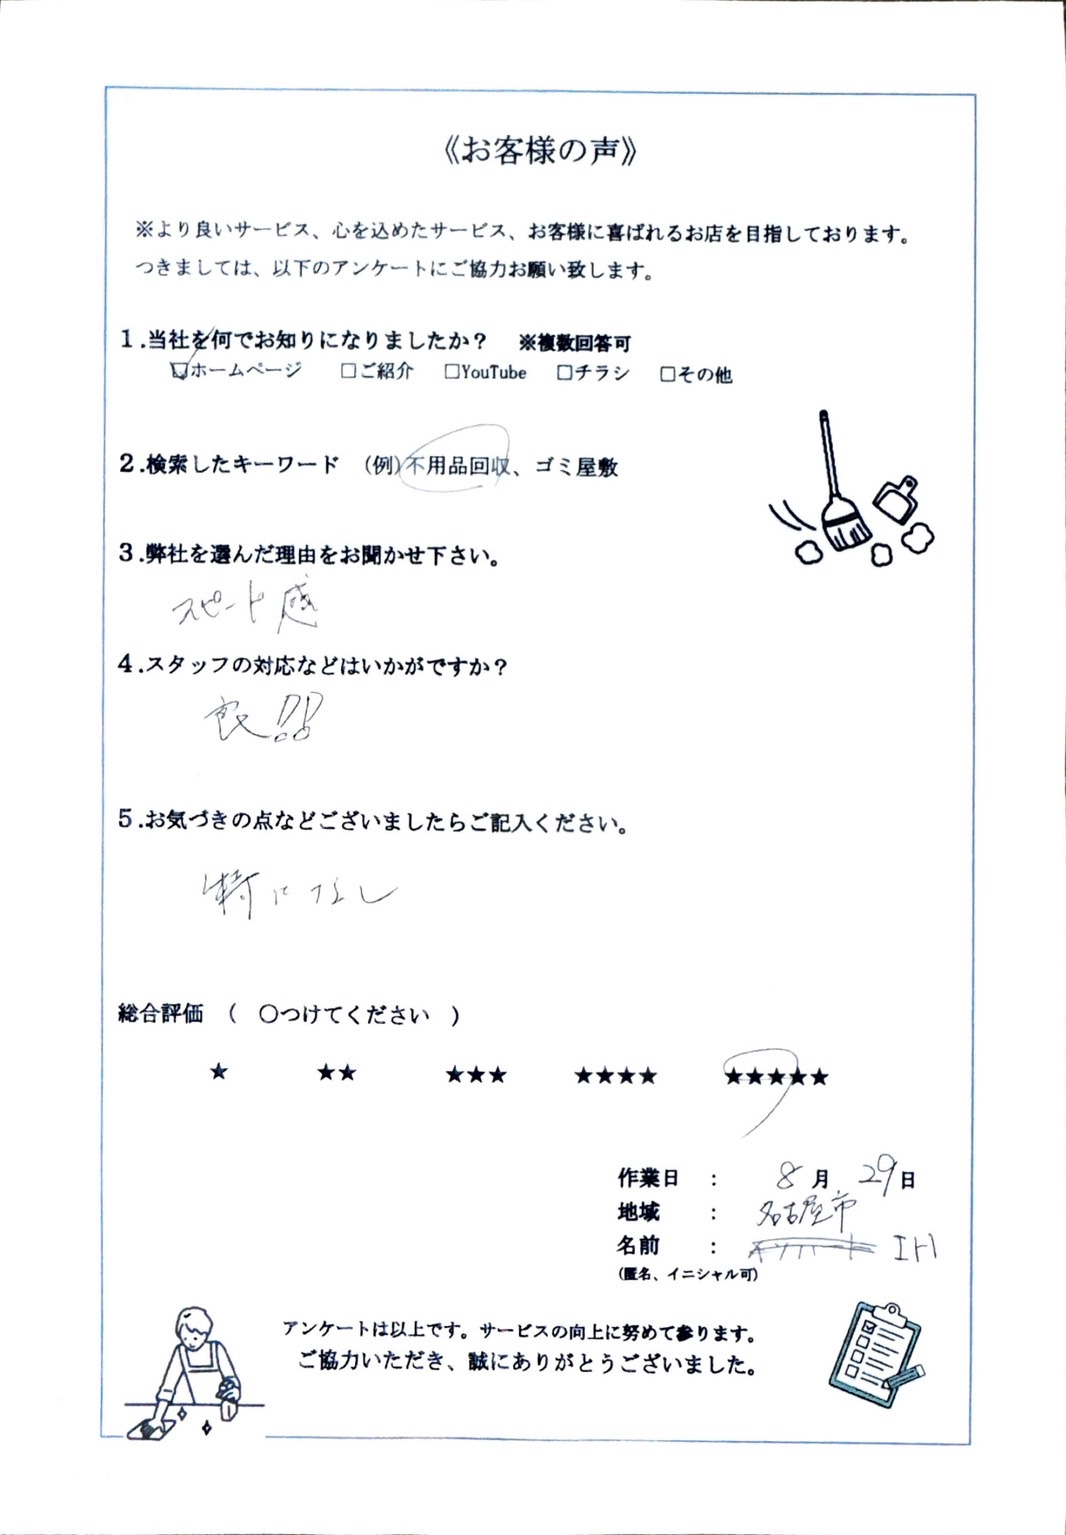 《お客様の声》
※より良いサービス、心を込めたサービス、お客様に喜ばれるお店を目指しております。
つきましては、以下のアンケートにご協力お願い致します。
1.当社を何でお知りになりましたか? ※複数回答可
☑ホームページ □ご紹介 □YouTube □チラシ □その他
2.検索したキーワード (例)不用品回収、ゴミ屋敷
3.弊社を選んだ理由をお聞かせ下さい。
スピード感
4.スタッフの対応などはいかがですか?
良!!
5.お気づきの点などございましたらご記入ください。
特になし
総合評価 ( ○つけてください )
★ ★★ ★★★ ★★★★ ★★★★★
作業日 : 8月 29日
地域 : 名古屋市
名前 :
(匿名、イニシャル可)
アンケートは以上です。サービスの向上に努めて参ります。
ご協力いただき、誠にありがとうございました。